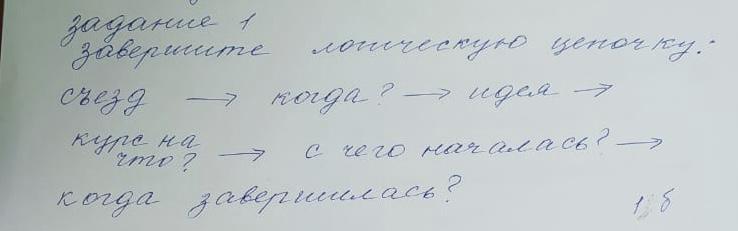 задание 1
завершите логическую цепочку:
съезд → когда? → идея →
курс на
что? → с чего началась? →
когда завершилась?
1 б